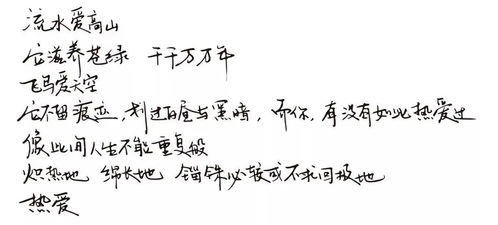 流水爱高山
它滋养苍绿 千千万万年
飞鸟爱天空
它不留痕迹,划过白昼与黑暗,而你,有没有如此热爱过
像此间人生不能重复般
炽热地 绵长地 锱铢必较或不求回报地
热爱